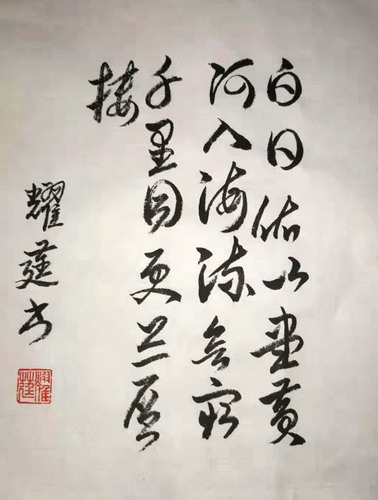 白日依山盡黄
河入海流欲窮
千里目更上一层
楼
耀莛书